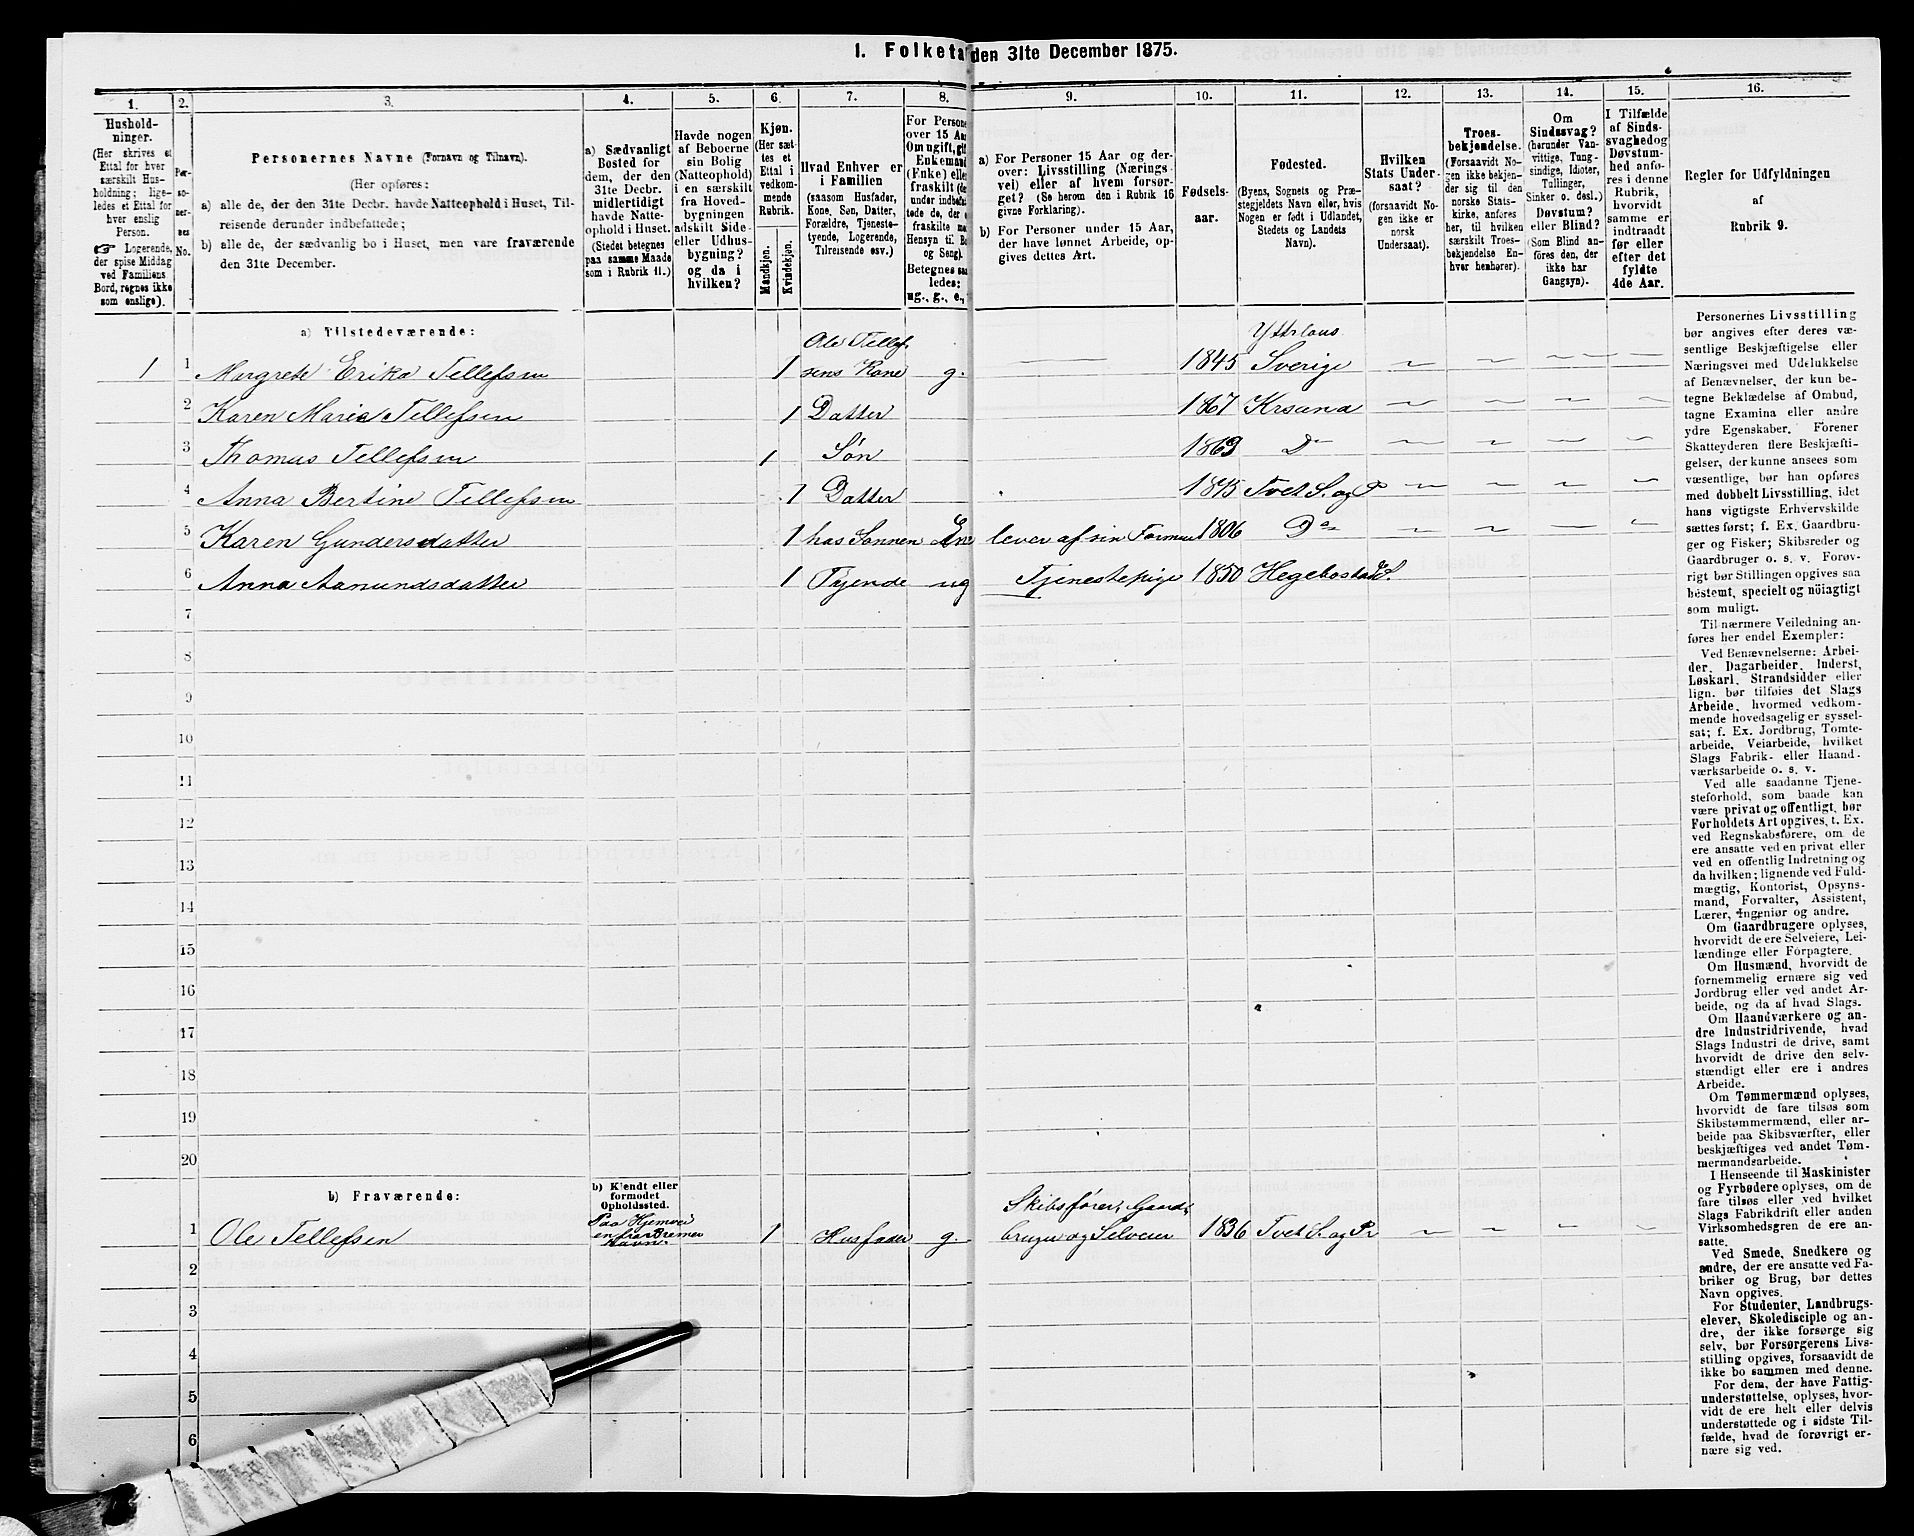 1. Folketal den 31te December 1875.
1.
2.
3.
4.
5.
6.
7.
8.
9.
10.
11.
12.
13.
14.
15.
16.
Husholdninger.
(Her skrives et
Ettal for hver
særskilt Husholdning;
ligeledes et Ettal for
hver enslig
Person.
☞ Logerende,
der spise Middag
ved Familiens
Bord, regnes ikke
som enslige).
Personernes No.
Personernes Navne (Fornavn og Tilnavn).
(Her opføres:
a) alle de, der den 31te Decbr. havde Natteophold i Huset, Tilreisende derunder indbefattede;
b) alle de, der sædvanlig bo i Huset, men vare fraværende
den 31te December.
a) Sædvanligt
Bosted for
dem, der den
31te Decbr.
midlertidigt
havde Natteophold i Huset.
(Stedet betegnes
paa samme Maade
som i Rubrik 11.)
Havde nogen
af Beboerne
sin Bolig
(Natteophold)
i en særskilt
fra Hovedbygningen
adskilt Side-
eller Udhusbygning?
og da i
hvilken?
Kjøn.
(Her sættes et
Ettal i
vedkommende
Rubrik.
Mandkjøn.
Kvindekjøn.
Hvad Enhver er
i Familien
(saasom Husfader,
Kone, Søn, Datter,
Forældre, Tjenestetyende, Logerende,
Tilreisende osv.)
For Persone
over 15 Aa
Om ugift, gif
Enkemand
(Enke) elle
fraskilt (de
under indbefa
tede de, der e
fraskilte m
Hensyn til Bo
og Seng).
Betegnes saa
ledes:
ug., g., e.,
a) For Personer 15 Aar og derover: Livsstilling (Næringsvei) eller af hvem forsørget? (Se herom den i Rubrik 16
givne Forklaring).
b) For Personer under 15 Aar,
der have lønnet Arbeide, opgives dettes Art.
Fødselsaar.
Fødested.
(Byens, Sognets og Præstegjeldets Navn eller, hvis
Nogen er født i Udlandet,
Stedets og Landets
Navn).
Hvilken
Stats Undersaat?
(forsaavidt Nogen ikke er
norsk
Undersaat).
Troesbekjendelse.
(Forsaavidt Nogen ikke bekjender sig til den
norske Statskirke, anføres
her, til hvilken
særskilt Troesbekjendelse Enhver henhører).
Om
Sindssvag?
(herunder Vanvittige, Tungsindige, Idioter,
Tullinger,
Sinker o. desl.)
Døvstum?
eller Blind?
(Som Blind anføres den, der
ikke har
Gangsyn).
I Tilfælde
af Sindssvaghed og
Døvstumhed anføres i denne
Rubrik,
hvorvidt
samme er
indtraadt
før eller
efter det
fyldte
4de Aar.
Regler for Udfyldningen
af
Rubrik 9.
a) Tilstedeværende:
1 1 Margrete Erika Tellefsen 1 Ole Tellefsens Kone g. — 1845 Sverige
2 Karen Maria Tellefsen 1 Datter 1867 Krsund
3 Thomas Tellefsen 1 Søn 1869 Do
4 Anna Bertine Tellefsen 1 Datter 1875 Tvet S. og P
5 Karen Gundersdatter 1 hos Sønnen En lever af sin Formue 1806 Do
6 Anna Aanundsdatter 1 Tyende ug Tjenestepige 1850 Hegebostad S.
7
8
9
10
11
12
13
14
15
16
17
18
19
20
b) Fraværende:
b) Kjendt eller
formodet
Opholdssted.
1 Ole Tellefsen Paa Hjemveien fra Bremerhavn. 1 Husfader g. Skibsfører, Gaardbruger og Selveier 1836 Tvet S. og Pr
2
3
4
5
6
Personernes Livsstilling
bør angives efter deres væsentlige Beskjæftigelse eller
Næringsvei med Udelukkelse
af Benævnelser, der kun betegne Beklædelse af Ombud,
tagne Examina eller andre
ydre Egenskaber. Forener
Skatteyderen flere Beskjæftigelser, der kunne ansees som
væsentlige, bør han opføres
med dobbelt Livsstilling, idet
hans vigtigste Erhvervskilde
sættes først; f. Ex. Gaardbruger og Fisker; Skibsreder og
Gaardbruger o. s. v. Forøvrigt bør Stillingen opgives saa
bestemt, specielt og nöiagtigt
som muligt.
Til nærmere Veiledning anføres her endel Exempler:
Ved Benævnelserne: Arbeider, Dagarbeider, Inderst,
Løskarl, Strandsidder eller
lign. bør tilføies det Slags
Arbeide, hvormed vedkommende hovedsagelig er sysselsat; f. Ex. Jordbrug, Tomtearbeide, Veiarbeide, hvilket
Slags Fabrik- eller Haandværksarbeide o. s. v.
Ved alle saadanne Tjenesteforhold, som baade kan
være privat og offentligt, bør
Forholdets Art opgives, t. Ex.
ved Regnskabsførere, om de
ere ansatte ved en privat eller
ved en offentlig Indretning og
da hvilken; lignende ved Fuldmægtig, Kontorist, Opsynsmand, Forvalter, Assistent,
Lærer, Ingeniør og andre.
Om Gaardbrugere oplyses,
hvorvidt de ere Selveiere, Leilændinge eller Forpagtere.
Om Husmænd, hvorvidt de
fornemmelig ernære sig ved
Jordbrug eller ved andet Arbeide, og da af hvad Slags.
Om Haandværkere og andre Industridrivende, hvad
Slags Industri de drive, samt
hvorvidt de drive den selvstændigt eller ere i andres
Arbeide.
Om Tømmermænd oplyses,
hvorvidt de fare tilsøs som
Skibstømmermænd, eller arbeide paa Skibsværfter, eller
beskjæftiges ved andet Tømmermandsarbeide.
I Henseende til Maskinister
og Fyrbødere oplyses, om de
fare tilsøs eller ved hvilket
Fabrikdrift eller anden
Virksomhedsgren de ere ansatte.
Ved Smede, Snedkere og
andre, der ere ansatte ved Fabriker og Brug, bør dettes
Navn opgives.
For Studenter, Landbrugselever, Skoledisciple og andre, der ikke forsørge sig
selv, bør Forsørgerens Livsstilling opgives, forsaavidt de
ikke bo sammen med denne.
For dem, der have Fattigunderstøttelse, oplyses, hvorvidt de ere helt eller delvis
understøttede og i sidste Tilfælde, hvad de forøvrigt ernære sig ved.